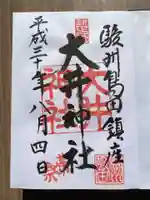 駿州島田鎮座
大井神社
平成三十年八月四日
大井
神社